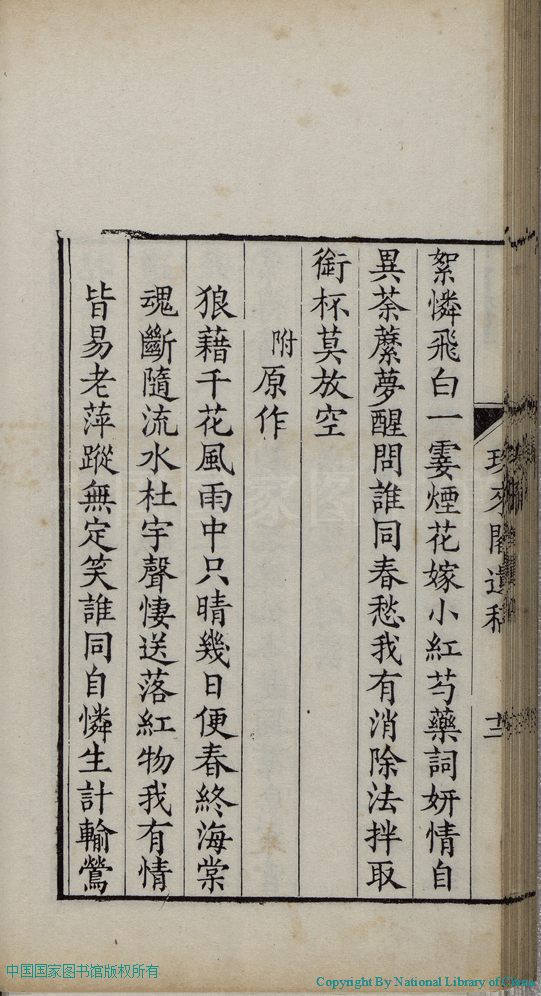 絮憐飛白一霎煙花嫁小紅芍藥詞妍情自
異荼蘼夢醒問誰同春愁我有消除法拌取
銜杯莫放空
附原作
狼藉千花風雨中只晴幾日便春終海棠
魂斷隨流水杜宇聲悽送落紅物我有情
皆易老萍蹤無定笑誰同自憐生計輸鶯
來閣遺稿
十二
中国国家图书馆版权所有
Copyright By National Library of China